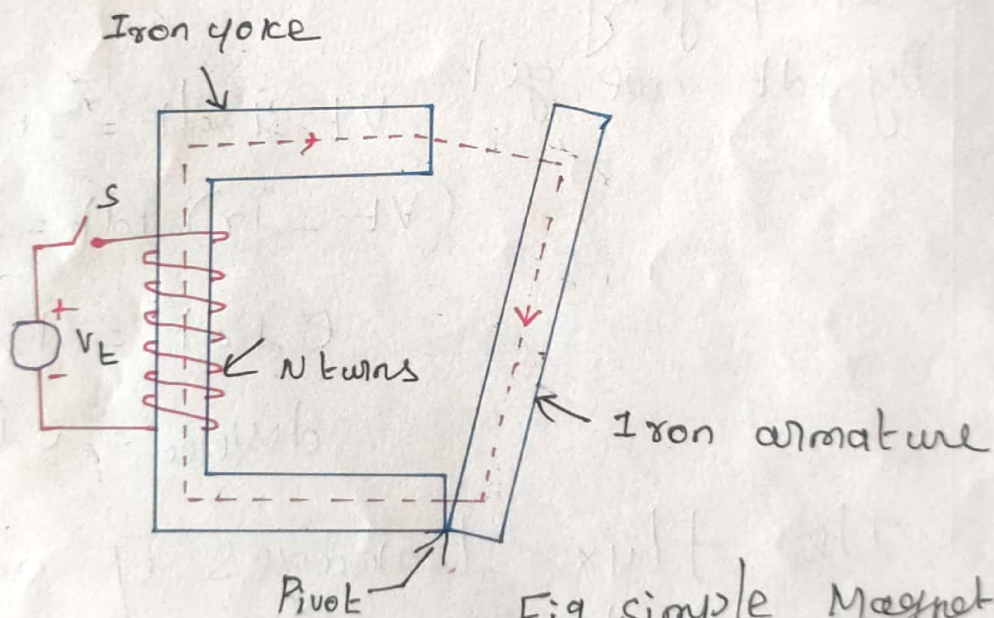 Iron yoke
S
+
Vt
-
N turns
Iron armature
Pivot
Fig simple Magnet